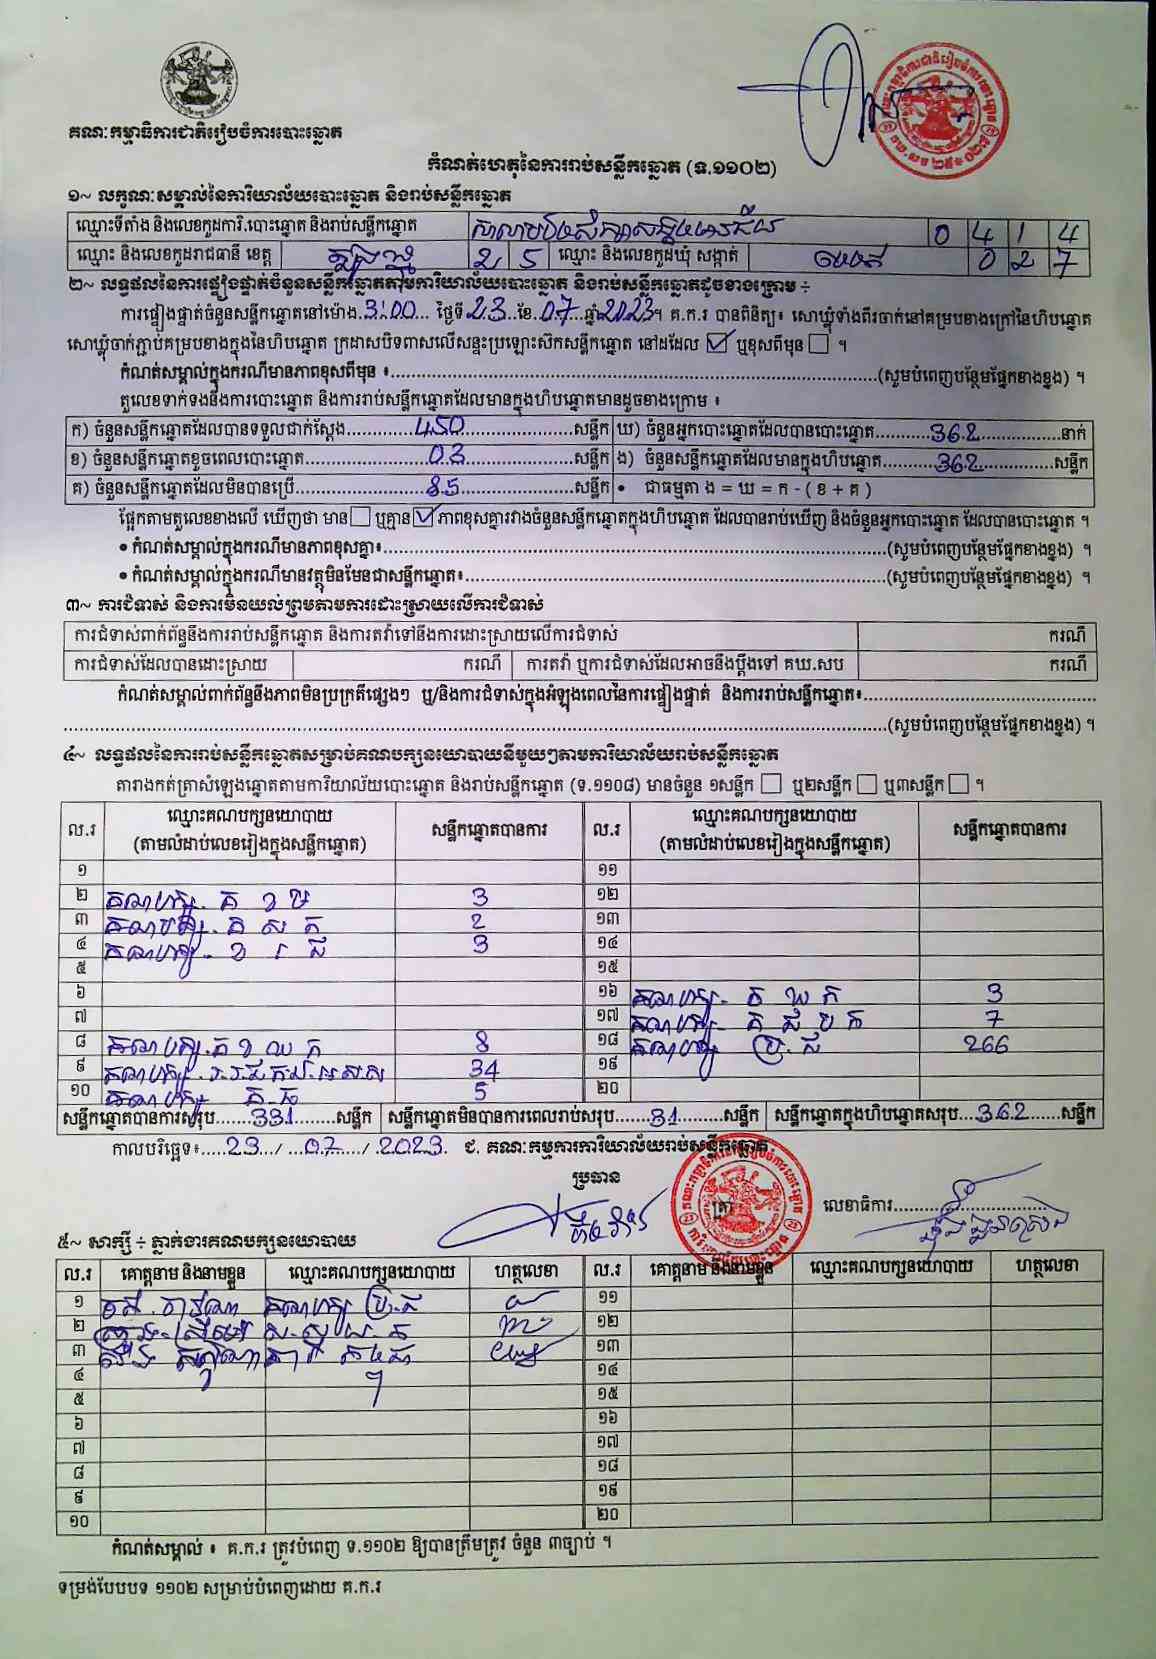 គណៈកម្មាធិការជាតិរៀបចំការបោះឆ្នោត
កំណត់ហេតុនៃការរាប់សន្លឹកឆ្នោត (ទ.១១០២)
១~ លក្ខណៈសម្គាល់នៃការិយាល័យបោះឆ្នោត និងរាប់សន្លឹកឆ្នោត
ឈ្មោះទីតាំង និងលេខកូដការិ.បោះឆ្នោត និងរាប់សន្លឹកឆ្នោត 0 4 1 4
ឈ្មោះ និងលេខកូដរាជធានី ខេត្ត ត្បូងឃ្មុំ 2 5 ឈ្មោះ និងលេខកូដឃុំ សង្កាត់ 0 2 7
២~ លទ្ធផលនៃការផ្ទៀងផ្ទាត់ចំនួនសន្លឹកឆ្នោតតាមការិយាល័យបោះឆ្នោត និងរាប់សន្លឹកឆ្នោតដូចខាងក្រោម ÷
ការផ្ទៀងផ្ទាត់ចំនួនសន្លឹកឆ្នោតនៅម៉ោង 3:00 ថ្ងៃទី 23 ខែ 07 ឆ្នាំ 2023 ។ គ.ក.រ បានពិនិត្យ៖ សោឃ្លុំទាំងពីរចាក់នៅគម្របខាងក្រៅនៃហិបឆ្នោត
សោឃ្លុំចាក់ភ្ជាប់គម្របខាងក្នុងនៃហិបឆ្នោត ក្រដាសបិទពាសលើសន្ទះប្រឡោះស៊កសន្លឹកឆ្នោត នៅដដែល ☑ ឬខុសពីមុន ☐ ។
កំណត់សម្គាល់ក្នុងករណីមានភាពខុសពីមុន ៖ (សូមបំពេញបន្ថែមផ្នែកខាងខ្នង) ។
តួលេខទាក់ទងនឹងការបោះឆ្នោត និងការរាប់សន្លឹកឆ្នោតដែលមានក្នុងហិបឆ្នោតមានដូចខាងក្រោម ៖
ក) ចំនួនសន្លឹកឆ្នោតដែលបានទទួលជាក់ស្តែង 450 សន្លឹក ឃ) ចំនួនអ្នកបោះឆ្នោតដែលបានបោះឆ្នោត 362 នាក់
ខ) ចំនួនសន្លឹកឆ្នោតខូចពេលបោះឆ្នោត 03 សន្លឹក ង) ចំនួនសន្លឹកឆ្នោតដែលមានក្នុងហិបឆ្នោត 362 សន្លឹក
គ) ចំនួនសន្លឹកឆ្នោតដែលមិនបានប្រើ 85 សន្លឹក • ជាធម្មតា ង = ឃ = ក - ( ខ + គ )
ផ្អែកតាមតួលេខខាងលើ ឃើញថា មាន ☐ ឬគ្មាន ☑ ភាពខុសគ្នារវាងចំនួនសន្លឹកឆ្នោតក្នុងហិបឆ្នោត ដែលបានរាប់ឃើញ និងចំនួនអ្នកបោះឆ្នោត ដែលបានបោះឆ្នោត ។
• កំណត់សម្គាល់ក្នុងករណីមានភាពខុសគ្នា៖ (សូមបំពេញបន្ថែមផ្នែកខាងខ្នង) ។
• កំណត់សម្គាល់ក្នុងករណីមានវត្ថុមិនមែនជាសន្លឹកឆ្នោត៖ (សូមបំពេញបន្ថែមផ្នែកខាងខ្នង) ។
៣~ ការជំទាស់ និងការមិនយល់ព្រមតាមការដោះស្រាយលើការជំទាស់
ការជំទាស់ពាក់ព័ន្ធនឹងការរាប់សន្លឹកឆ្នោត និងការតវ៉ាទៅនឹងការដោះស្រាយលើការជំទាស់ ករណី
ការជំទាស់ដែលបានដោះស្រាយ ករណី ការតវ៉ា ឬការជំទាស់ដែលអាចនឹងប្តឹងទៅ គឃ.សប ករណី
កំណត់សម្គាល់ពាក់ព័ន្ធនឹងភាពមិនប្រក្រតីផ្សេងៗ ឬ/និងការជំទាស់ក្នុងអំឡុងពេលនៃការផ្ទៀងផ្ទាត់ និងការរាប់សន្លឹកឆ្នោត៖
(សូមបំពេញបន្ថែមផ្នែកខាងខ្នង) ។
៤~ លទ្ធផលនៃការរាប់សន្លឹកឆ្នោតសម្រាប់គណបក្សនយោបាយនីមួយៗតាមការិយាល័យរាប់សន្លឹកឆ្នោត
តារាងកត់ត្រាសំឡេងឆ្នោតតាមការិយាល័យបោះឆ្នោត និងរាប់សន្លឹកឆ្នោត (ទ.១១០៨) មានចំនួន ១សន្លឹក ☐ ឬ២សន្លឹក ☐ ឬ៣សន្លឹក ☐ ។
ល.រ ឈ្មោះគណបក្សនយោបាយ (តាមលំដាប់លេខរៀងក្នុងសន្លឹកឆ្នោត) សន្លឹកឆ្នោតបានការ ល.រ ឈ្មោះគណបក្សនយោបាយ (តាមលំដាប់លេខរៀងក្នុងសន្លឹកឆ្នោត) សន្លឹកឆ្នោតបានការ
១ ១១
២ គណបក្ស. គ ខ ម 3 ១២
៣ គណបក្ស. គ ស ក 2 ១៣
៤ គណបក្ស. ខ រ ជ 3 ១៤
៥ ១៥
៦ ១៦ គណបក្ស. ក ឃ ក 3
៧ ១៧ គណបក្ស. គ ជ ប ក 7
៨ គណបក្ស. គ ខ ឃ ក 8 ១៨ គណបក្ស ប្រ.ជ 266
៩ គណបក្ស. 34 ១៩
១០ គណបក្ស 5 ២០
សន្លឹកឆ្នោតបានការសរុប 331 សន្លឹក សន្លឹកឆ្នោតមិនបានការពេលរាប់សរុប 31 សន្លឹក សន្លឹកឆ្នោតក្នុងហិបឆ្នោតសរុប 362 សន្លឹក
កាលបរិច្ឆេទ៖ 23 / 07 / 2023 ជ. គណៈកម្មការការិយាល័យរាប់សន្លឹកឆ្នោត
ប្រធាន
លេខាធិការ
៥~ សាក្សី ÷ ភ្នាក់ងារគណបក្សនយោបាយ
ល.រ គោត្តនាម និងនាមខ្លួន ឈ្មោះគណបក្សនយោបាយ ហត្ថលេខា ល.រ គោត្តនាម និងនាមខ្លួន ឈ្មោះគណបក្សនយោបាយ ហត្ថលេខា
១ គណបក្ស ប្រ.ជ ១១
២ ១២
៣ ១៣
៤ ១៤
៥ ១៥
៦ ១៦
៧ ១៧
៨ ១៨
៩ ១៩
១០ ២០
កំណត់សម្គាល់ ៖ គ.ក.រ ត្រូវបំពេញ ទ.១១០២ ឱ្យបានត្រឹមត្រូវ ចំនួន ៣ច្បាប់ ។
ទម្រង់បែបបទ ១១០២ សម្រាប់បំពេញដោយ គ.ក.រ